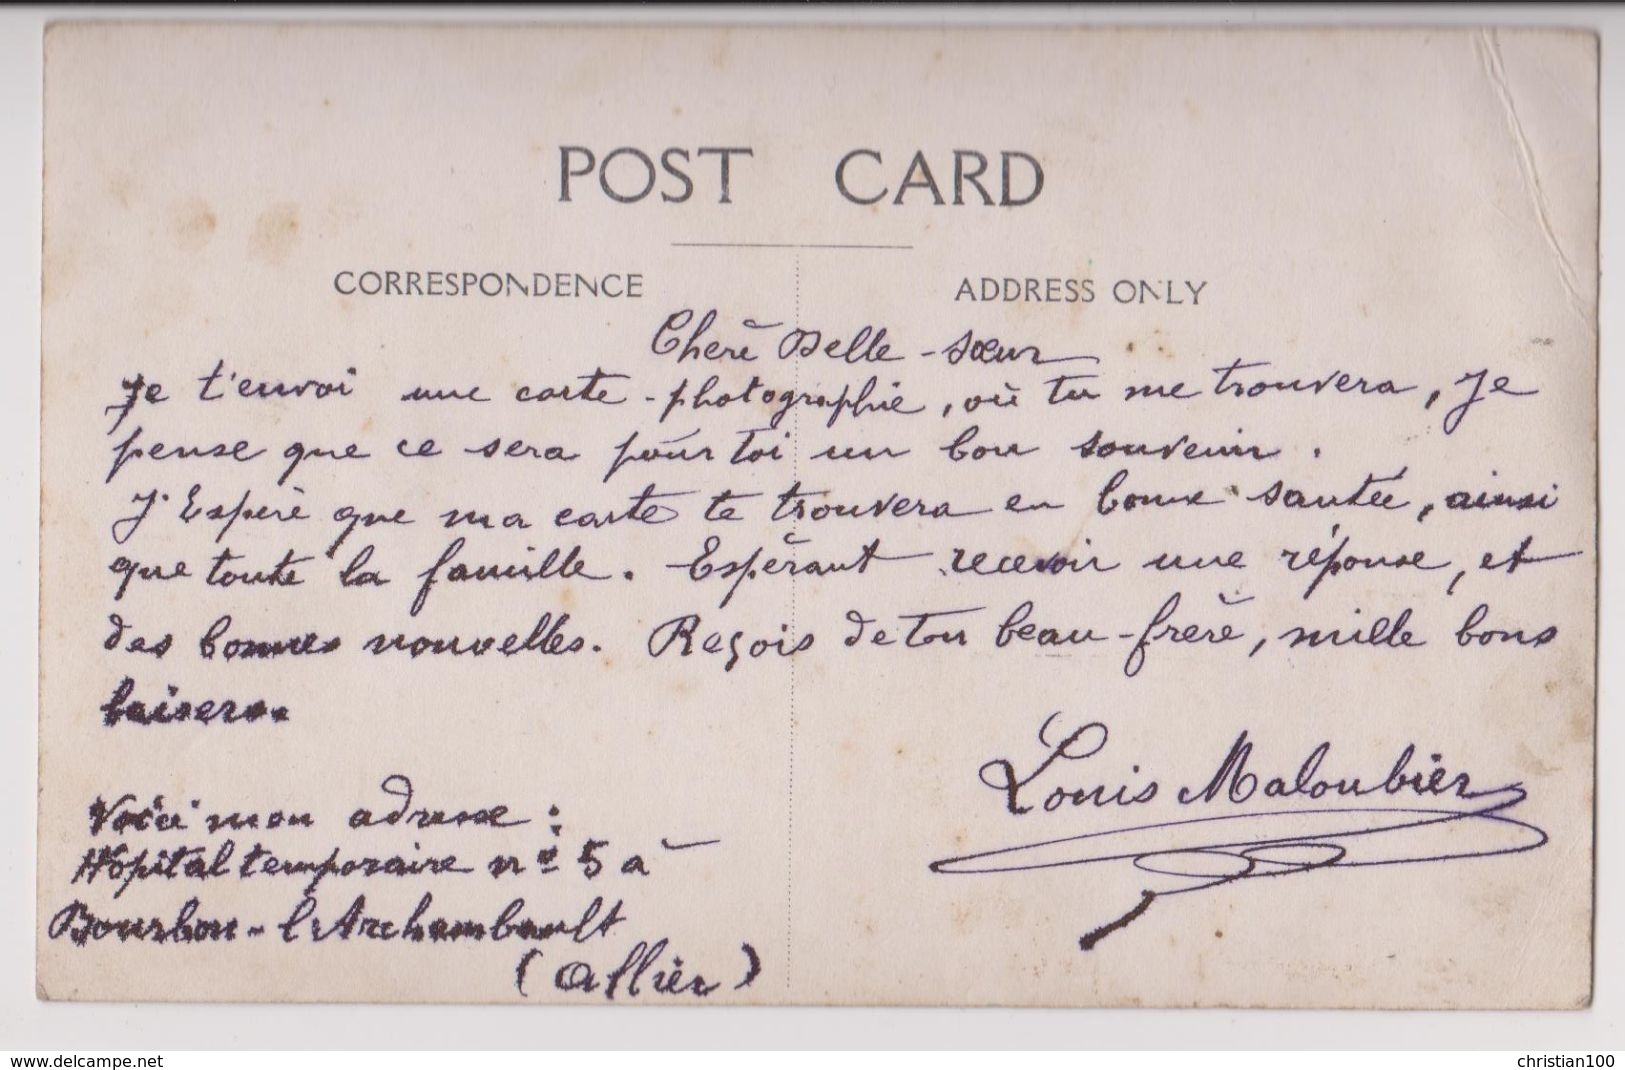 POST CARD
CORRESPONDENCE
ADDRESS ONLY
Cherè Belle-sœur
Je t'envoi une carte-photographie, où tu me trouvera, Je
pense que ce sera pour toi un bon souvenir.
J'Espère que ma carte te trouvera en bonne santée, ainsi
que toute la famille. Espèrant recevoir une réponse, et
des bonnes nouvelles. Reçois de ton beau-frère, mille bons
baisers.
Louis Maloubier
Voici mon adresse :
Hôpital temporaire n° 5 à
Bourbon-l'Archambault
(Allier)
www.delcampe.net
christian100